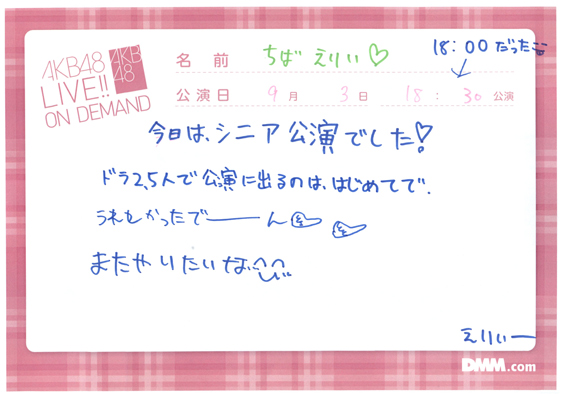 AKB48
LIVE!!
ON DEMAND
AKB
48
18:00だった
名前 ちば えりい♡
公演日 9月 3日 18:30 公演
今日は、シニア公演でした♡!
ドラ2,5人で公演に出るのは、はじめてで、
うれしかったで――ん
またやりたいな
えりぃー
DMM.com